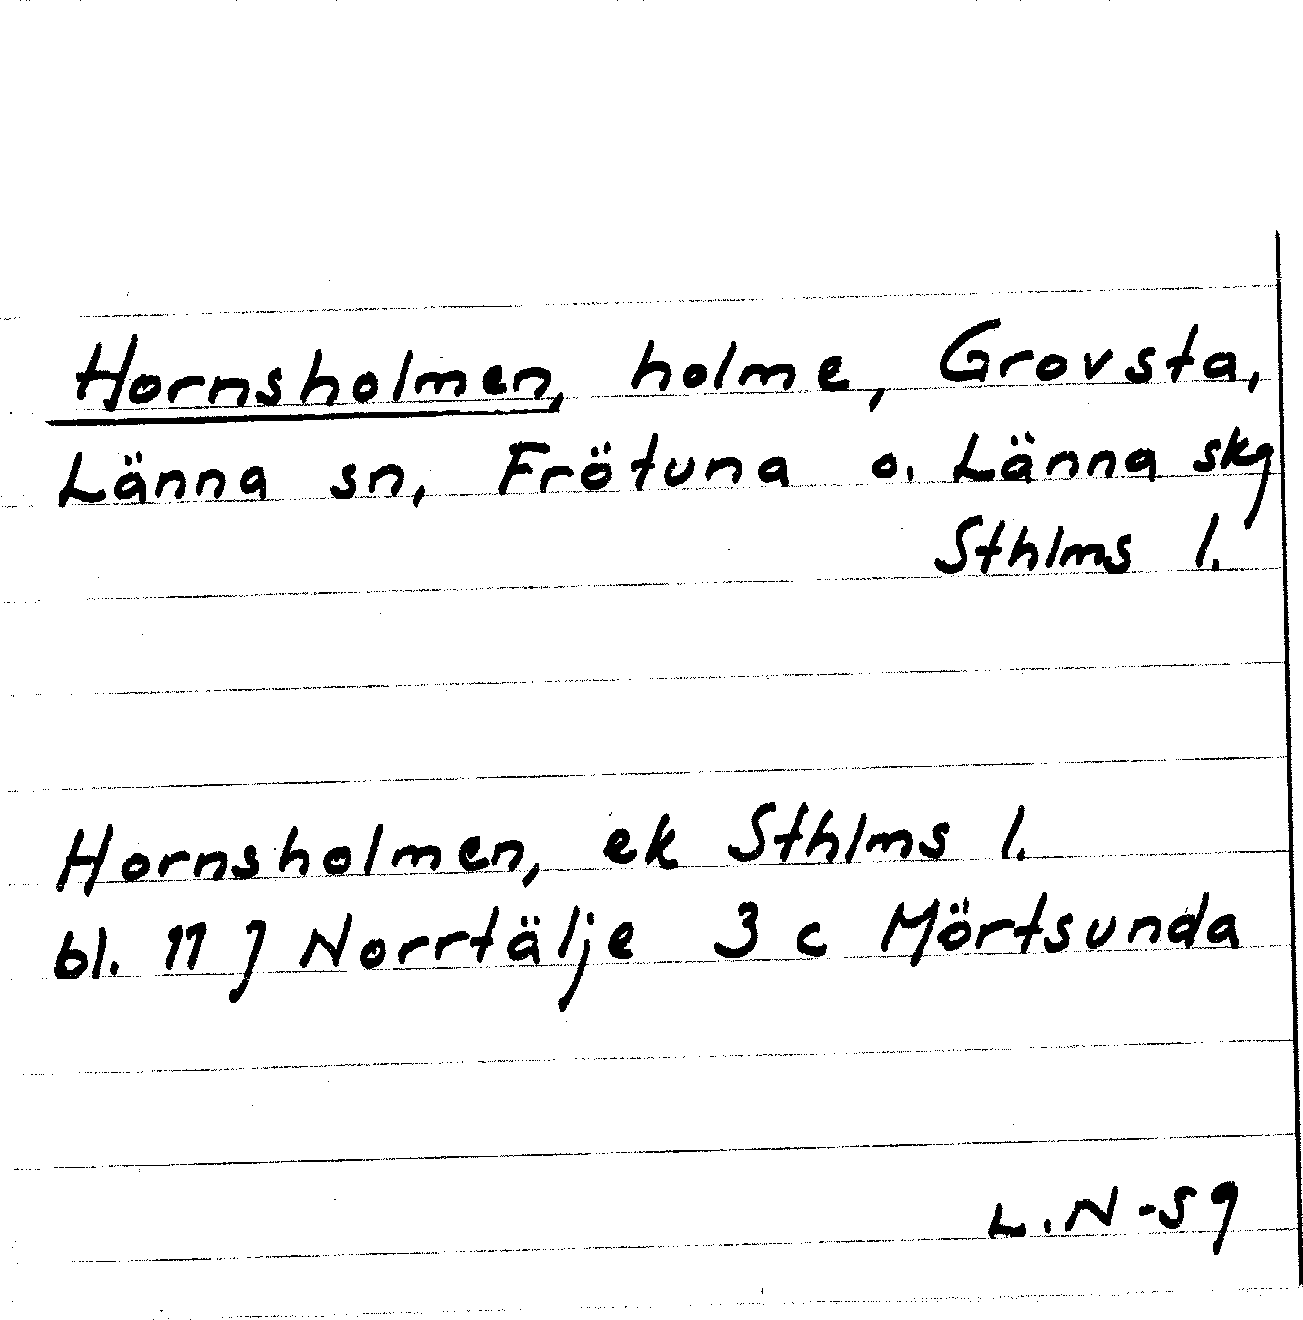 Hornsholmen, holme, Grovsta,
Länna sn, Frötuna o. Länna skg
Sthlms l.
Hornsholmen, ek Sthlms l.
bl. 11 J Norrtälje 3 c Mörtsunda
L.N-59